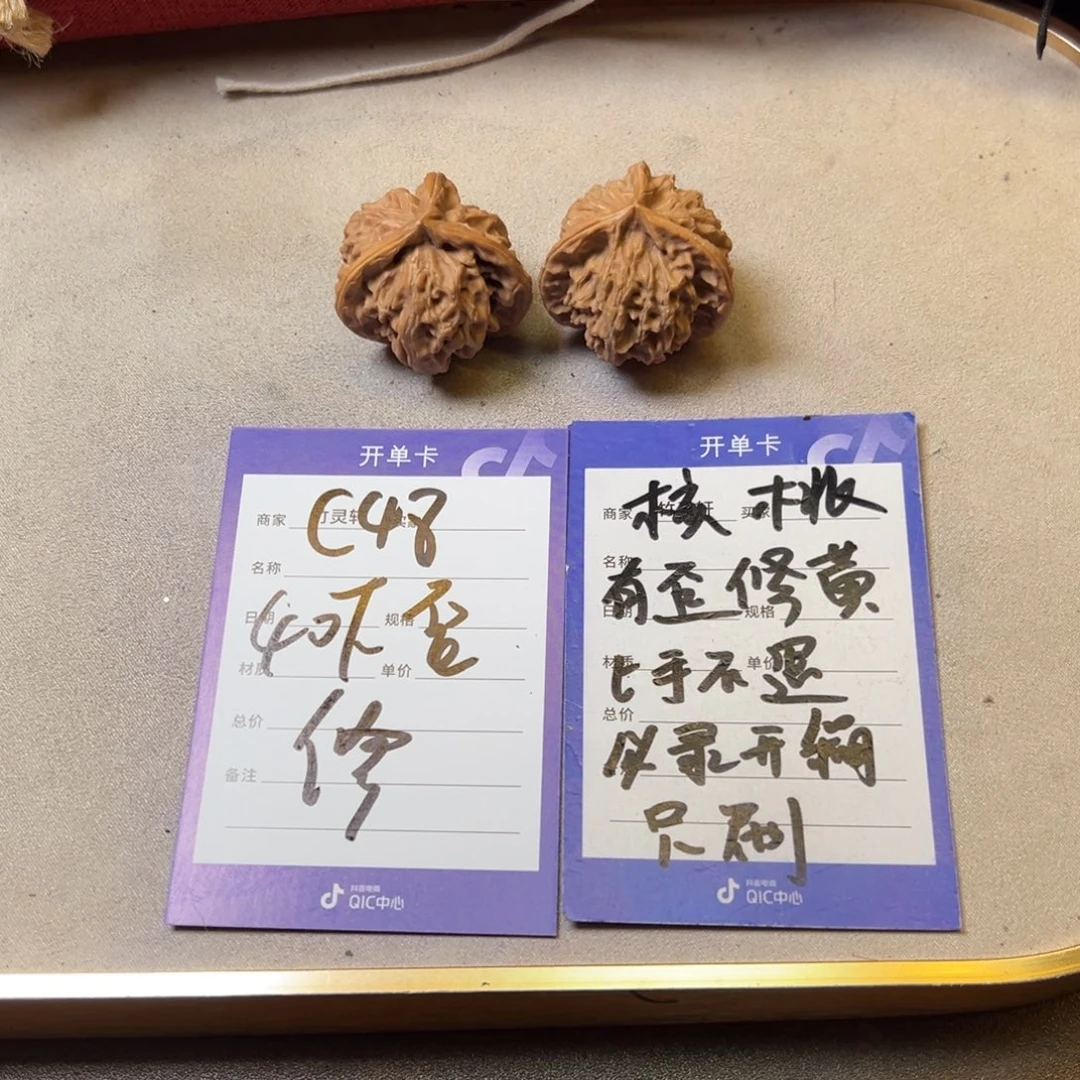 开单卡
商家 竹灵轩 买家
C48
名称
40下歪
日期 规格
材质 单价
总价
修
备注
抖音电商
QIC中心
开单卡
商家 竹灵轩 买家
核桃
名称
有歪修黄
日期 规格
上手不退
材质 单价
总价
必录开箱
只刷
抖音电商
QIC中心